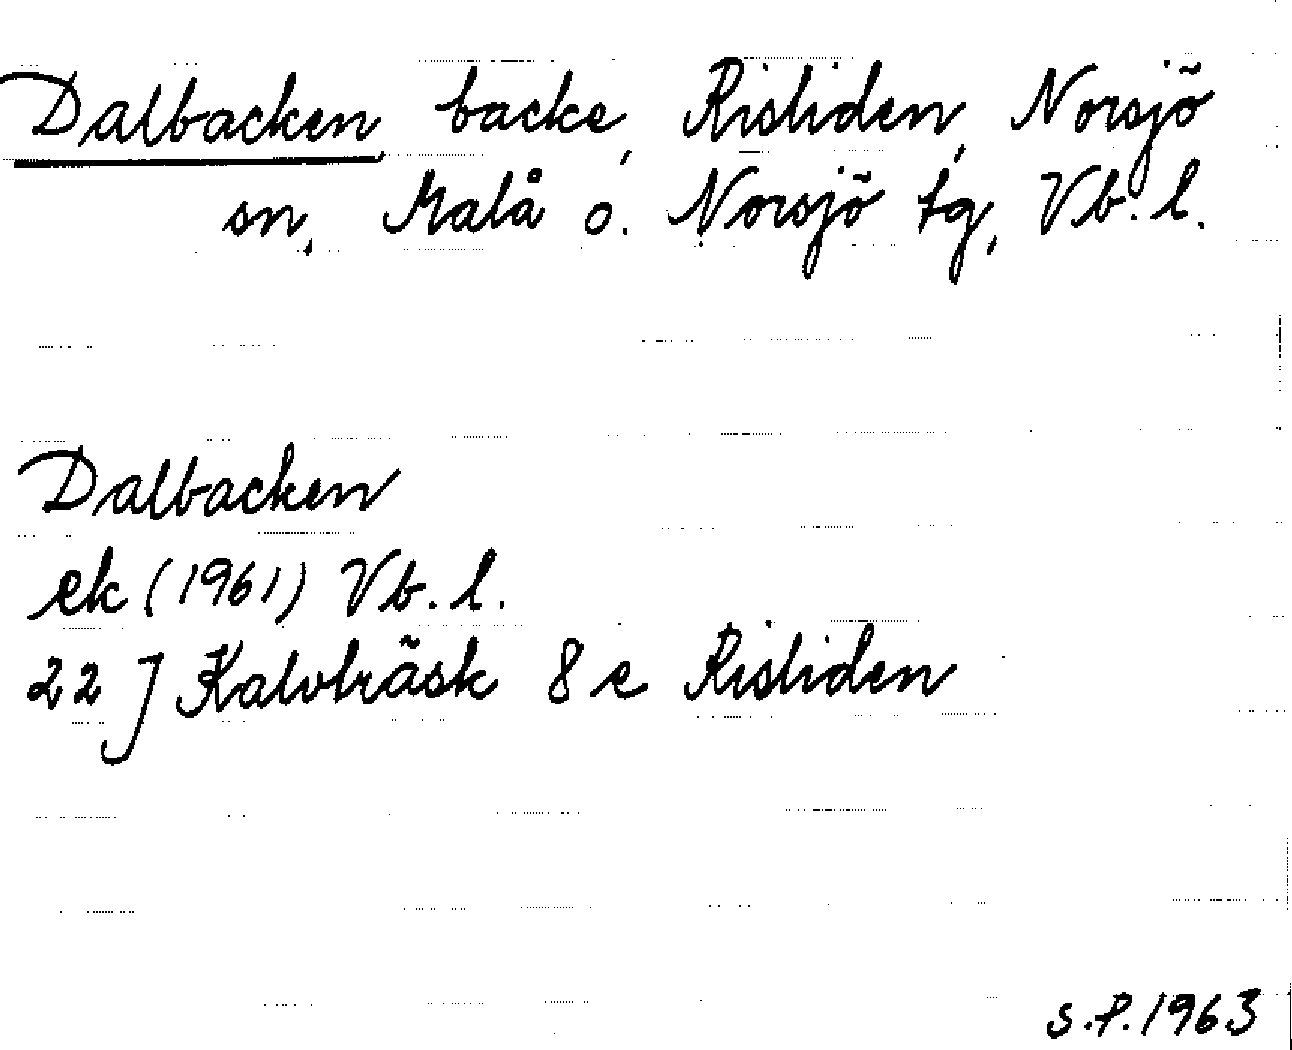 Dalbacken, backe, Risliden, Norsjö
sn, Malå o. Norsjö tg, Vb. l.
Dalbacken
ek (1961) Vb. l.
22 J Kalvträsk 8 e Risliden
S.P. 1963